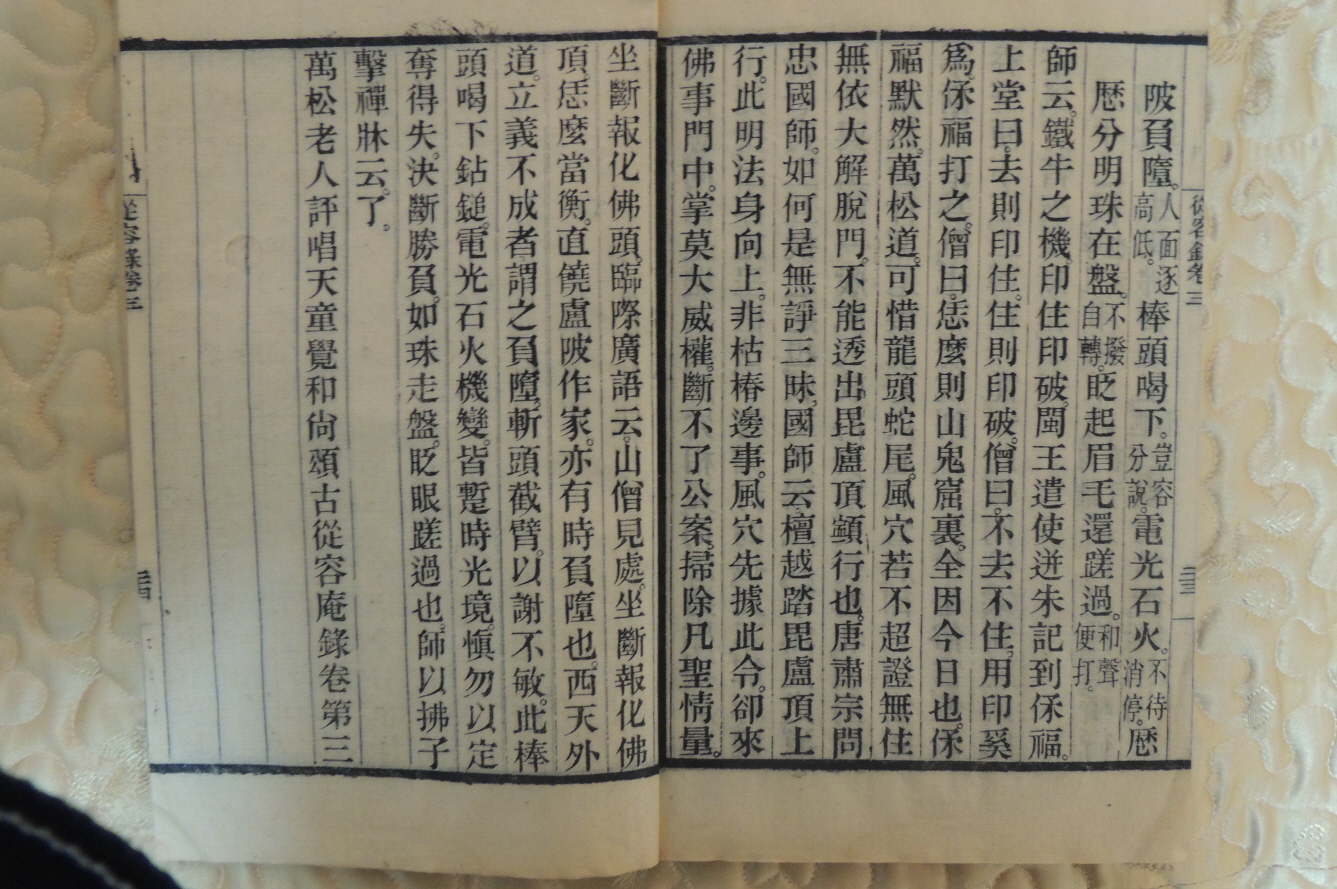 從容錄卷三
陂負墮。人面逐高低。棒頭喝下。豈容分說。電光石火。不待消停。歷
歷分明珠在盤。不撥自轉。眨起眉毛還蹉過。和聲便打。
師云。鐵牛之機。印住印破。閩王遣使送朱記到保福。
上堂曰。去則印住。住則印破。僧曰。不去不住。用印奚
爲。保福打之。僧曰。恁麼則山鬼窟裏。全因今日也。保
福默然。萬松道。可惜龍頭蛇尾。風穴若不超證無住
無依大解脫門。不能透出毘盧頂𩕳行也。唐肅宗問
忠國師。如何是無諍三昧。國師云。檀越踏毘盧頂上
行。此明法身向上。非枯椿邊事。風穴先據此令。卻來
佛事門中。掌莫大威權。斷不了公案。掃除凡聖情量。
坐斷報化佛頭。臨際廣語云。山僧見處。坐斷報化佛
頂。恁麼當衡。直饒盧陂作家。亦有時負墮也。西天外
道。立義不成者。謂之負墮。斬頭截臂。以謝不敏。此棒
頭喝下鉆鎚。電光石火機變。皆蹔時光境。愼勿以定
奪得失。決斷勝負。如珠走盤。眨眼蹉過也。師以拂子
擊禪牀云。了。
萬松老人評唱天童覺和尙頌古從容庵錄卷第三
從容錄卷三